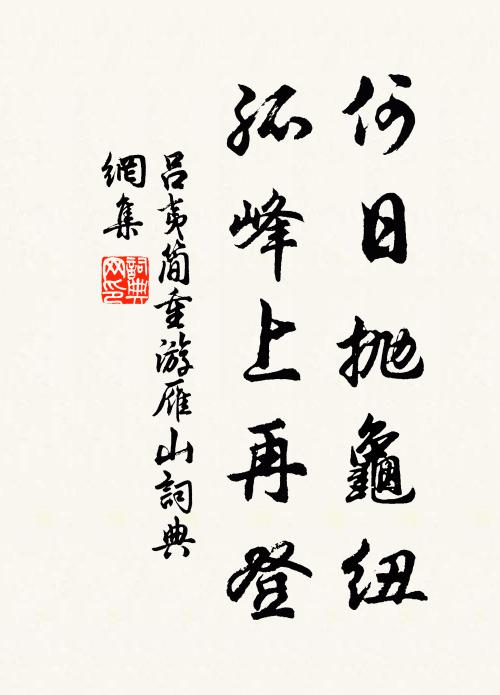 何日抛龜紐
孤峰上再登
呂夷简重游雁山詞典
網集
詞典
网印